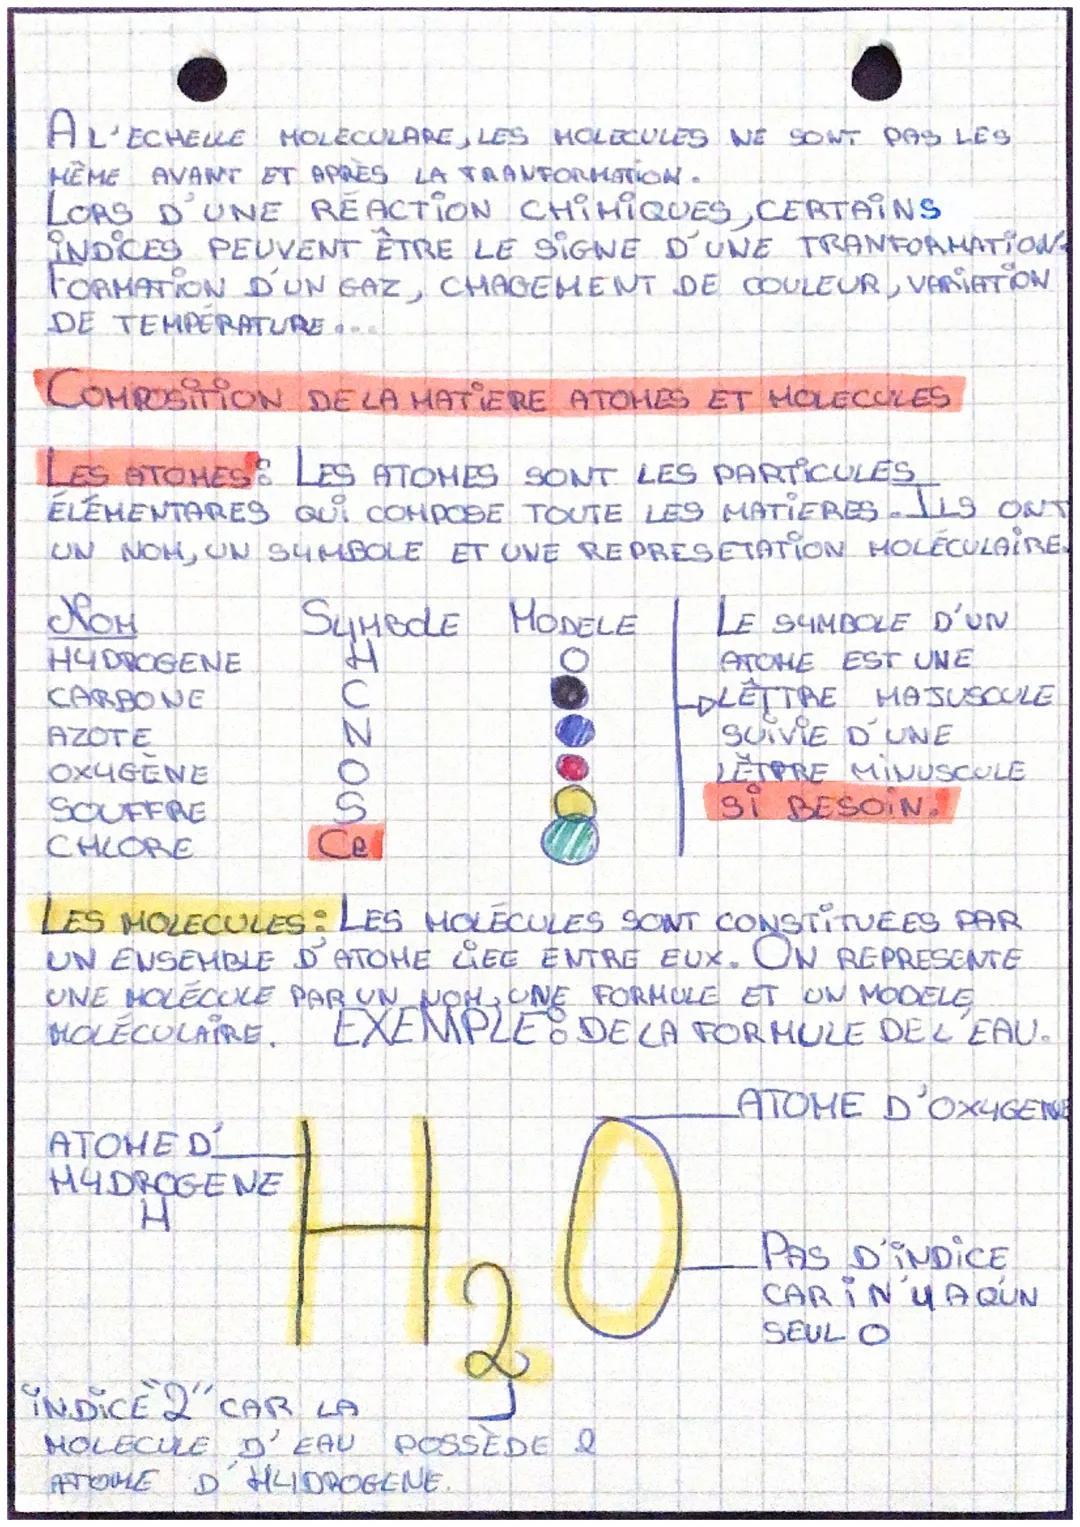 A L'ECHELLE MOLECULARE, LES MOLECULES NE SONT PAS LES
MÊME AVANT ET APRÈS LA TRANFORMATION.
LORS D'UNE RÉACTION CHIMIQUES, CERTAINS
INDICES PEUVENT ÊTRE LE SIGNE D'UNE TRANFORMATION:
FORMATION D'UN GAZ, CHAGEMENT DE COULEUR, VARIATION
DE TEMPÉRATURE ....
COMPOSITION DE LA MATIERE ATOMES ET MOLECULES
LES ATOMES: LES ATOMES SONT LES PARTICULES
ÉLÉMENTARES QUI COMPOSE TOUTE LES MATIERES. ILS ONT
UN NOM, UN SYMBOLE ET UNE REPRESETATION MOLÉCULAIRE.
NOM SYMBOLE MODELE
HYDROGENE H
CARBONE C
AZOTE N
OXYGÈNE O
SOUFFRE S
CHLORE Ce
LE SYMBOLE D'UN
ATOME EST UNE
LÊTTRE MAJUSCULE
SUIVIE D'UNE
LÊTTRE MINUSCULE
SI BESOIN.
LES MOLECULES: LES MOLÉCULES SONT CONSTITUEES PAR
UN ENSEMBLE D'ATOME LIEE ENTRE EUX. ON REPRESENTE
UNE MOLÉCULE PAR UN NOM, UNE FORMULE ET UN MODELE
MOLÉCULAIRE. EXEMPLE: DE LA FORMULE DE L'EAU.
ATOME D'OXYGENE
ATOME D'
HYDROGENE
H
H2O
PAS D'INDICE
CAR IN'Y A QUN
SEUL O
INDICE "2" CAR LA
MOLECULE D'EAU POSSÈDE 2
ATOME D'HYDROGENE.